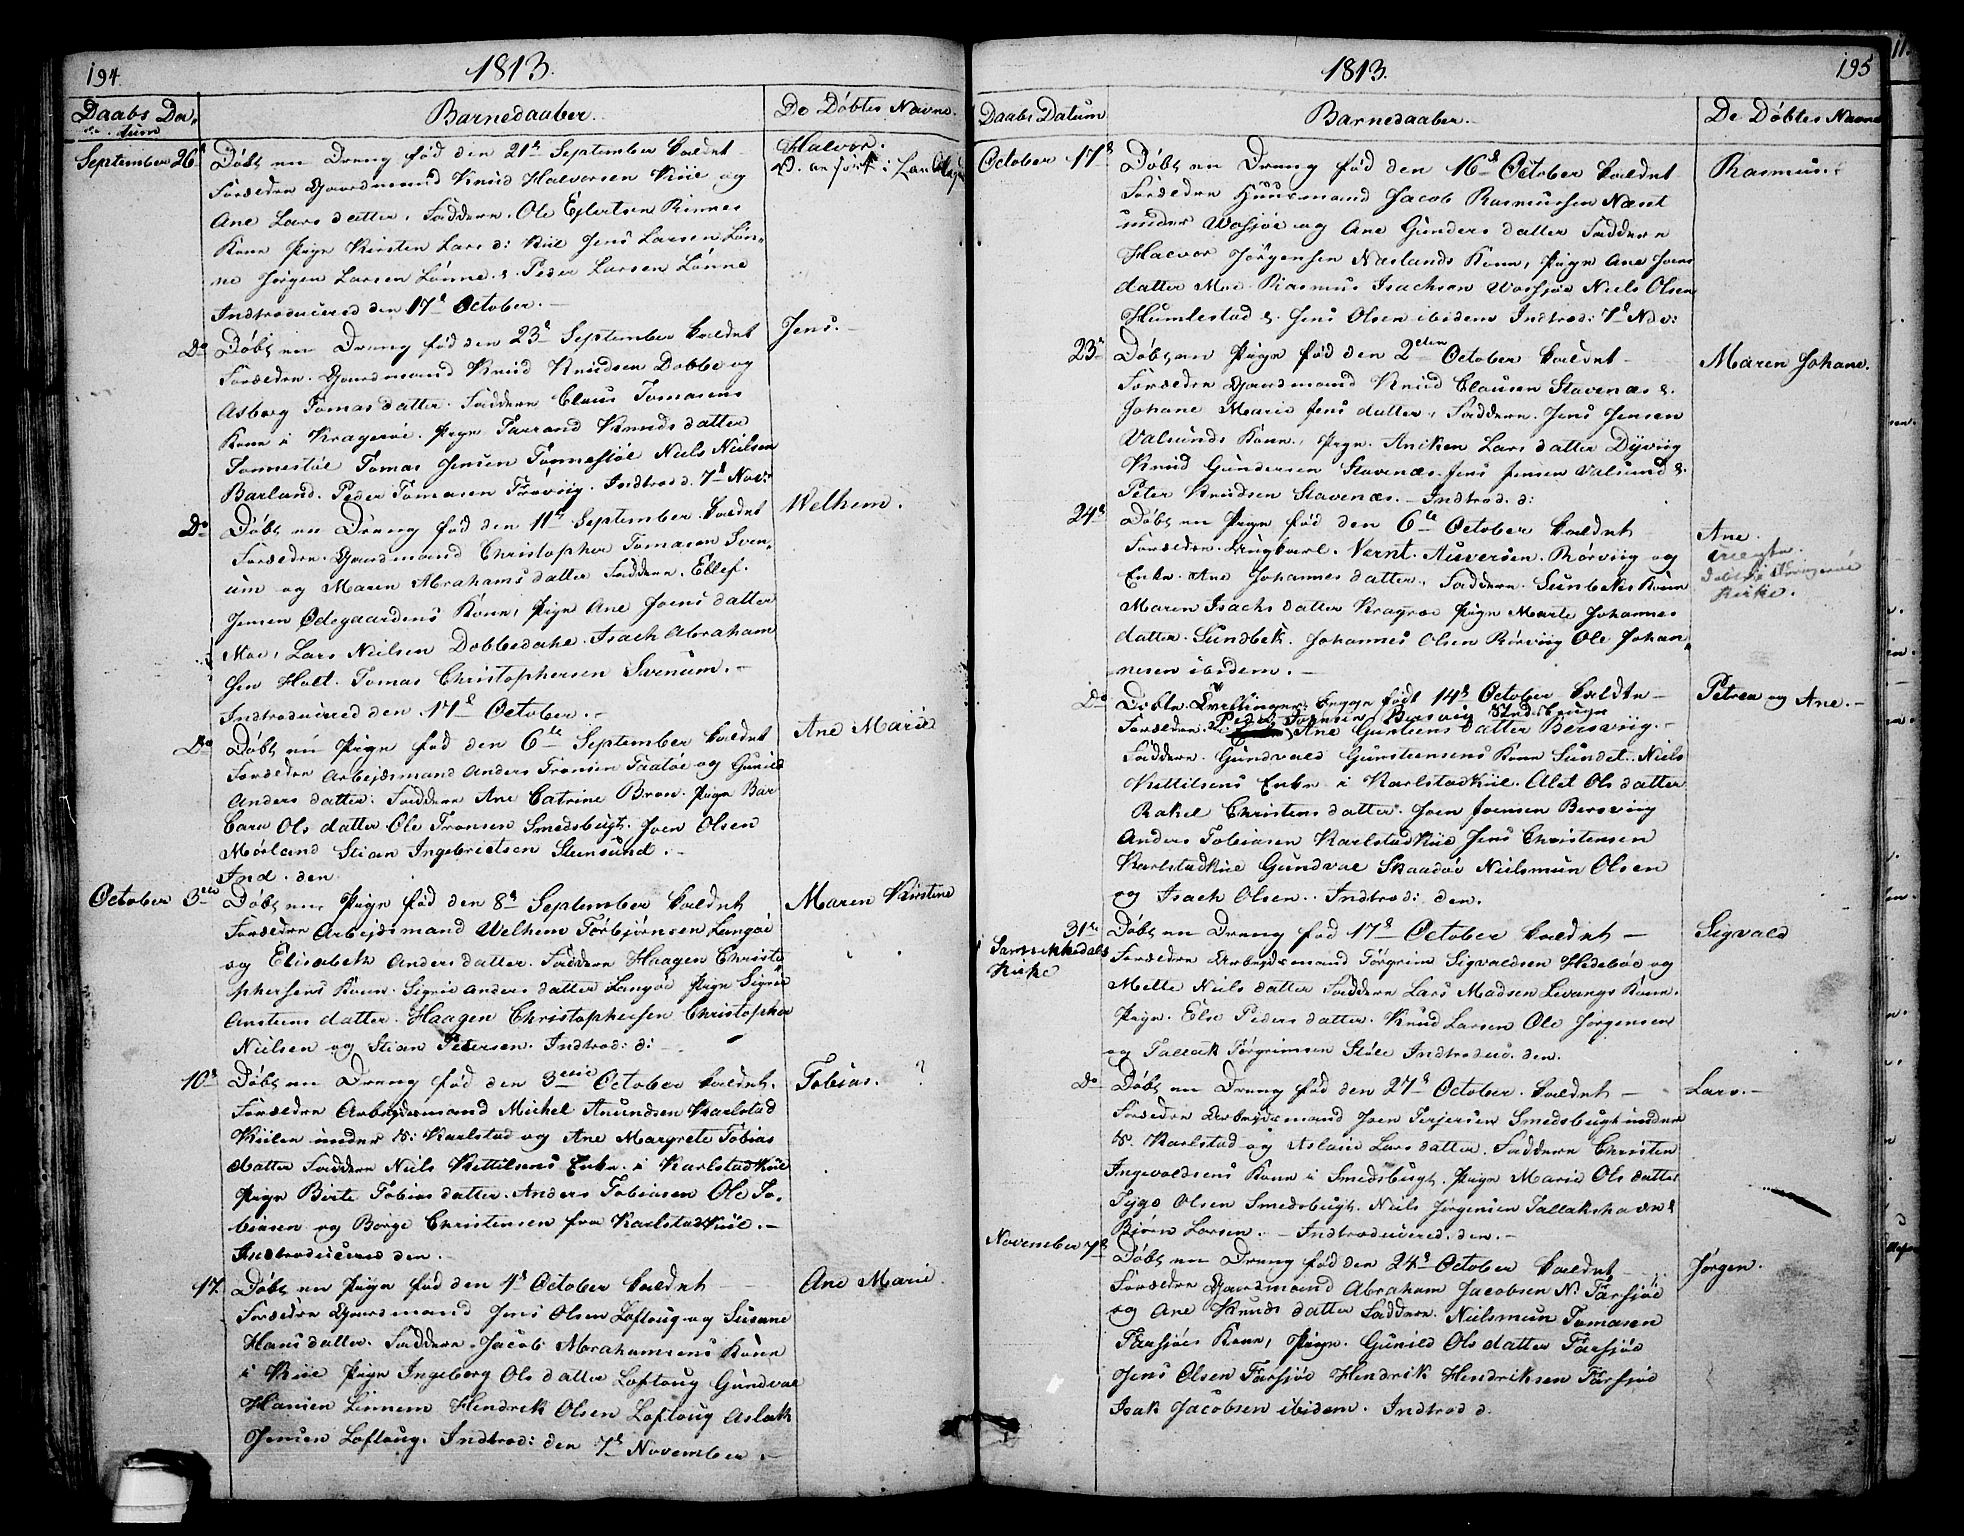 194.
1813.
Daabs Da-
tum
Barnedaaber.
De Döbtes Navne.
September 26de
Döbt en Dreng fød den 21de September kaldet
Forældre Gaardmand Knud Halvorsen Kiil og
Ane Lars datter. Faddere. Ole Ejlertsen Rinnes
Kone Pige Kirsten Lars d: Kiil Jens Larsen Løn-
ne Jørgen Larsen Lønne. & Peder Larsen Lønne
Indtroduceret den 17de October.-
Halvor.
Do
Döbt en Dreng fød den 23de September kaldet
Forældre. Gaardmand Knud Knudsen Dobbe og
Asborg Tomasdatter. Faddere Claus Tomasens
Kone i Kragerøe. Pige Tarrand Knuds datter
Tonnestøl Tomas Jensen Tønnestøl Niels Nielsen
Barland. Peder Tomasen Trøvig. Indtrod. 7de Nov:
Jens.-
Do
Döbt en Dreng fød den 11te September kaldet
Forældre. Gaardmand Christopher Tomasen Sven-
um og Maren Abrahams datter Faddere. Ellef
Jensen Ødegaardens Kone, Pige Ane Joens datter
Moe, Lars Nielsen Dobbedahl. Isach Abraham
sen Holt. Tomas Christophersen Svenum.-
Indtroducered den 17de October.-
Welhem.
Do
Döbt en Pige fød den 6te September kaldet
Forældre Arbejdsmand Anders Tronsen Taatøe og Gunild
Anders datter: Faddere Ane Catrine Bron. Pige Bar
bara Ols datter Ole Tronsen Smedsbugt. Joen Olsen
Mørland Stian Ingebretsen Stensund.-
Ind. den
Ane Marie
October 3die
Döbt en Pige fød den 8de September kaldet
Forældre Arbejdsmand Welhem Torbjørnsen Langøe
og Elisabeth Anders datter. Faddere Haagen Christo
phersens Kone. Sigrie Anders datter Langøe Pige Sigrie
Austens datter. Haagen Christophersen Christopher
Nielsen og Stian Petersen. Indtrod: d:
Maren Kirstine
10de
Döbt en Dreng fød den 3die October kaldet.
Forældre Arbejdsmand Michel Anundsen Karlstad
Kiilen under S: Karlstad og Ane Margrete Tobias
datter Faddere Niels Kettilsens Enke i Karlstadkiil
Pige Birte Tobias datter. Anders Tobiasen Ole To-
biasen og Børge Christensen fra Karlstadkiil.-
Indtroducered den.-
Tobias. ?
17.
Döbt en Pige fød den 4de October kaldet
Forældre Gaardmand Jens Olsen Loftoug og Susane
Hans datter. Faddere Jacob Abrahamsens Kone
i Kiil Pige Ingeborg Ols datter Loftoug Gundval
Hansen Linnem Hendrik Olsen Loftoug Aslak
Jensen Loftoug. Indtrod: den 7de November.-
Ane Marie.
1813.
195
Daabs Datum
Barnedaaber.-
De Döbtes Navne
October 17de
Döbt en Dreng fød den 16de October kaldet
Forældre Huusmand Jacob Rasmussen Næset
under Wasjøe og Ane Gunders datter Faddere
Halvor Jörgensen Naslands Kone, Pige Ane Joens
datter Moe. Rasmus Isachsen Wasjøe Niels Olsen
Humlestad & Jens Olsen ibidem Indtrod: 7de Nov:
Rasmus.
23de
Döbt en Pige fød den 2den October kaldet
Forældre Gaardmand Knud Clausen Stavenæs &
Johane Marie Jens datter, Faddere. Jens Jensen
Valsunds Kone, Pige. Aniken Lars datter Dyvig
Knud Gundersen Stavenæs Jens Jensen Valsund &
Peter Knudsen Stavenæs.- Indtrod. d:
Maren Johane.
24de
Döbt en Pige fød den 6te October kaldet
Forældre. Ungkarl. Vernt. Auversen. Rørviig og
Enke. Ane Johannes datter. Faddere. Sunbeks Kone
Maren Isachs datter Kragrøe Pige Marte Johannes
datter. Sundbek. Johannes Olsen Rørviig Ole Johan-
nesen ibidem.-
Ane.
uægte.
Kirke.
Do
Döbte Tvillinger begge født 14de October kaldte
Peder Joensen Bersvig
Forældre. Ane Gunstens datter Bersviig.-
Faddere. Gundvald Gunstensens Kone Sundet. Niels
Kettilsens Enke i Karlstadkiil. Alet Ols datter
Rakel Christens datter. Joen Joensen Bersvig
Anders Tobiasen Karlstadkiil Jens Christensen
Karlstadkiil Gundval Skaadøe Nielsmun Olsen
og Isach Olsen.. Indtrod: den.
Petrea og Ane.-
31te
i Sannikkedals
Kirke
Döbt en Dreng fød 17de October kaldet
Forældre Arbejdsmand Törgrim Sigvaldsen Hedebøe og
Mette Niels datter Faddere Lars Madsen Levangs Kone.
Pige. Else Peders datter. Knud Larsen Ole Jørgensen
og Tallak Törgrimsen Støle Indtroduc. den.
Sigvald
Do
Döbt en Dreng fød den 27de October. kaldet
Forældre Arbejdsmand Joen Terjersen Smedsbugt under
S. Karlstad og Aslaue Lars datter. Faddere Christen
Ingevaldsens Kone i Smedsbugt. Pige Marie Ols datter
Tygo Olsen Smedsbugt. Niels Jørgensen Tallakshavn &
Bjørn Larsen.- Indtroducered. den.-
Lars.-
November 7de
Döbt en Dreng fød den 24de October kaldet
Forældre Gaardmand Abraham Jacobsen N: Farsjøe
og Ane Knuds datter Faddere. Nielsmun Tomasen
Farsjøes Kone, Pige. Gunild Ols datter Farsjøe
Jens Olsen Farsjøe Hendrik Hendriksen Farsjøe
Isak Jacobsen ibidem. Indtrod d.
Jørgen.